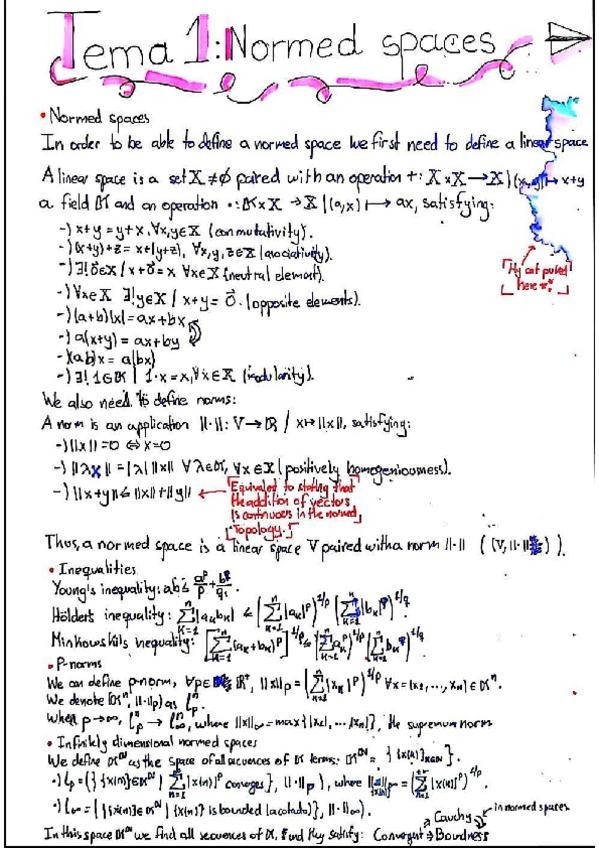 Tema 1: Normed spaces
• Normed spaces
In order to be able to define a normed space we first need to define a linear space
A linear space is a set X ≠ ∅ paired with an operation +: X × X → X | (x,y) ↦ x+y
a field 𝕂 and an operation ·: 𝕂 × X → X | (a,x) ↦ ax, satisfying:
-) x+y = y+x, ∀x,y∈X (conmutativity).
-) (x+y)+z = x+(y+z), ∀x,y,z∈X (asociativity).
-) ∃! 0⃗∈X / x+0⃗ = x ∀x∈X (neutral element).
-) ∀x∈X ∃! y∈X / x+y = 0⃗ (opposite elements).
-) (a+b)(x) = ax+bx
-) a(x+y) = ax+by
-) (ab)x = a(bx)
-) ∃! 1∈𝕂 | 1·x = x, ∀x∈X (modularity).
My cat puked
here
We also need to define norms:
A norm is an application ||·||: V → ℝ / x ↦ ||x||, satisfying:
-) ||x|| = 0 ⇔ x=0
-) ||λx|| = |λ| ||x|| ∀λ∈𝕂, ∀x∈X (positively homogeniousness).
-) ||x+y|| ≤ ||x||+||y|| ← Equivalent to stating that
the addition of vectors
is continuous in the normed
Topology.
Thus, a normed space is a linear space V paired with a norm ||·|| ((V, ||·||)).
• Inequalities
Young's inequality: ab ≤ a^p/p + b^q/q
Hölders inequality: ∑_{k=1}^n |a_k b_k| ≤ (∑_{k=1}^n |a_k|^p)^{1/p} (∑_{k=1}^n |b_k|^q)^{1/q}
Minkowskils inequality: [∑_{k=1}^n (a_k+b_k)^p]^{1/p} ≤ (∑_{k=1}^n a_k^p)^{1/p} (∑_{k=1}^n b_k^q)^{1/q}
• P-norms
We can define p-norm, ∀p∈ ℝ⁺, ||x||_p = (∑_{k=1}^n |x_k|^p)^{1/p} ∀x=(x_1,...,x_n)∈𝕂^n.
We denote (𝕂^n, ||·||_p) as l_p^n.
When p→∞, l_p^n → l_∞^n, where ||x||_∞ = max{|x_1|,...,|x_n|}, the supremum norm
• Infinitely dimensional normed spaces
We define 𝕂^ℕ as the space of all secuences of 𝕂 terms: 𝕂^ℕ = {{x(n)}_{n∈ℕ}}.
·) l_p = ({{x(n)}∈𝕂^ℕ | ∑_{n=1}^∞ |x(n)|^p converges}, ||·||_p), where = (∑_{n=1}^{+∞} |x(n)|^p)^{1/p}.
·) l_∞ = ({{x(n)}∈𝕂^ℕ | {x(n)} is bounded (acotado)}, ||·||_∞).
In this space 𝕂^ℕ we find all secuences of 𝕂, and they satisfy: Convergent → Cauchy → Boundness
in normed spaces.